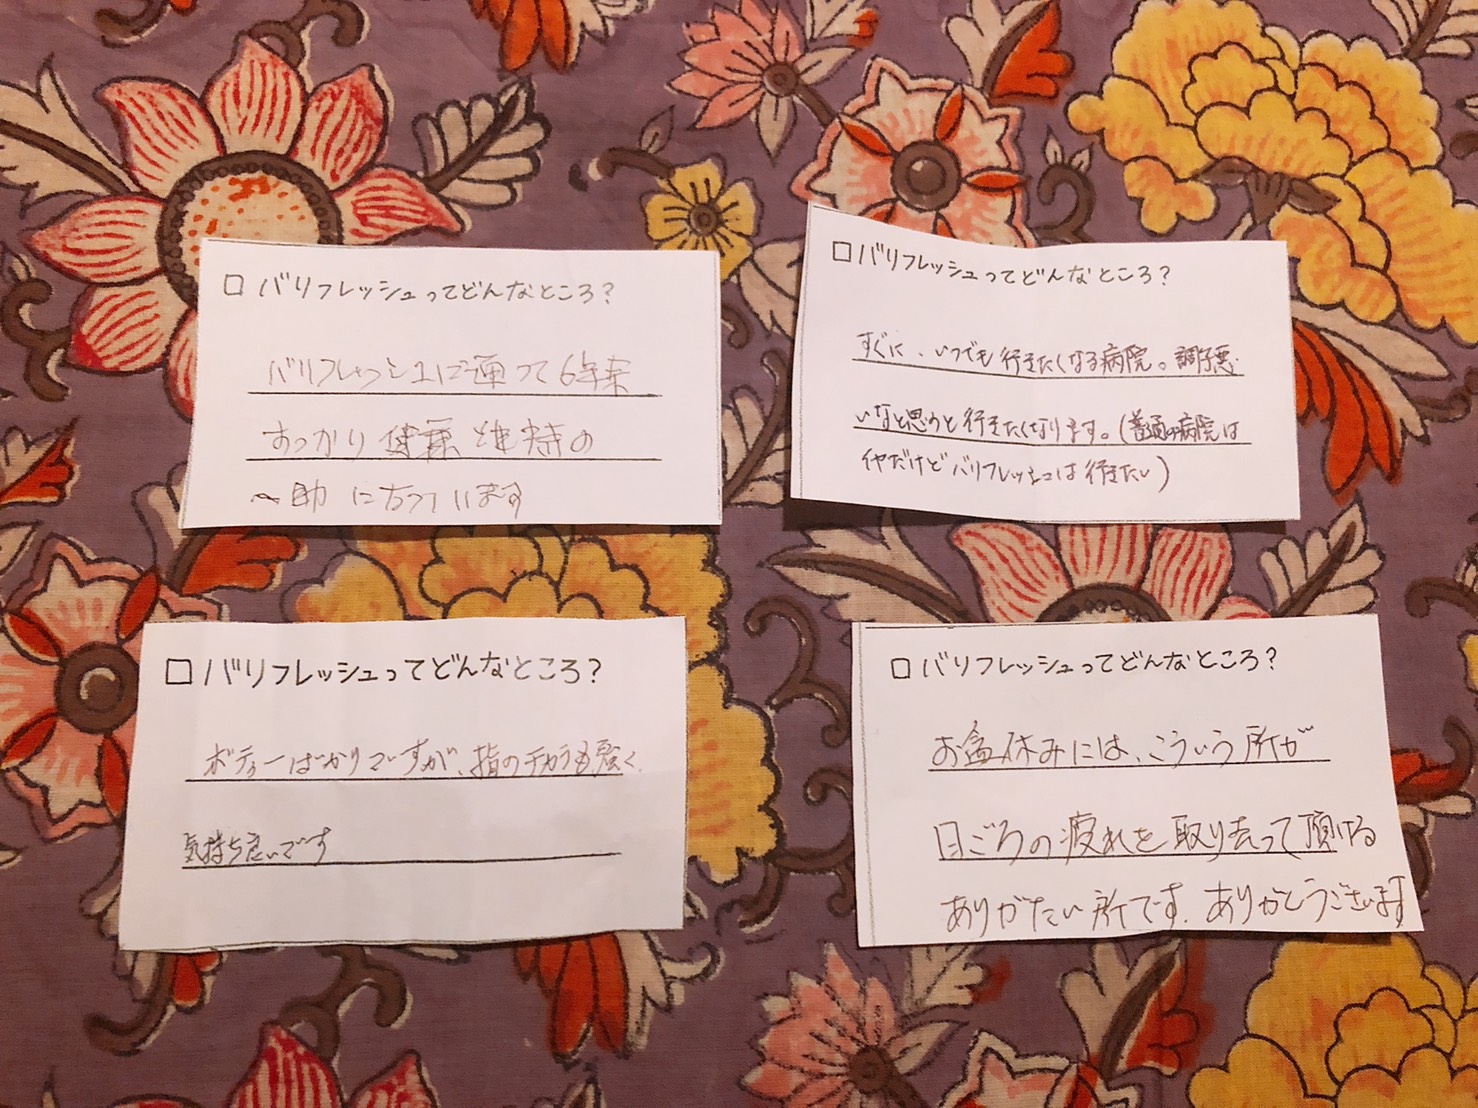 □ バリフレッシュってどんなところ?
バリフレッシュに通って6年来
すっかり健康維持の
一助になっています
□ バリフレッシュってどんなところ?
すぐに、いつでも行きたくなる病院。調子悪
いなと思うと行きたくなります。(普通の病院は
イヤだけどバリフレッシュは行きたい)
□ バリフレッシュってどんなところ?
ボディーばかりですが、指のチカラも強く、
気持ち良いです
□ バリフレッシュってどんなところ?
お盆休みには、こういう所が
日ごろの疲れを取り去って頂ける
ありがたい所です。ありがとうございます